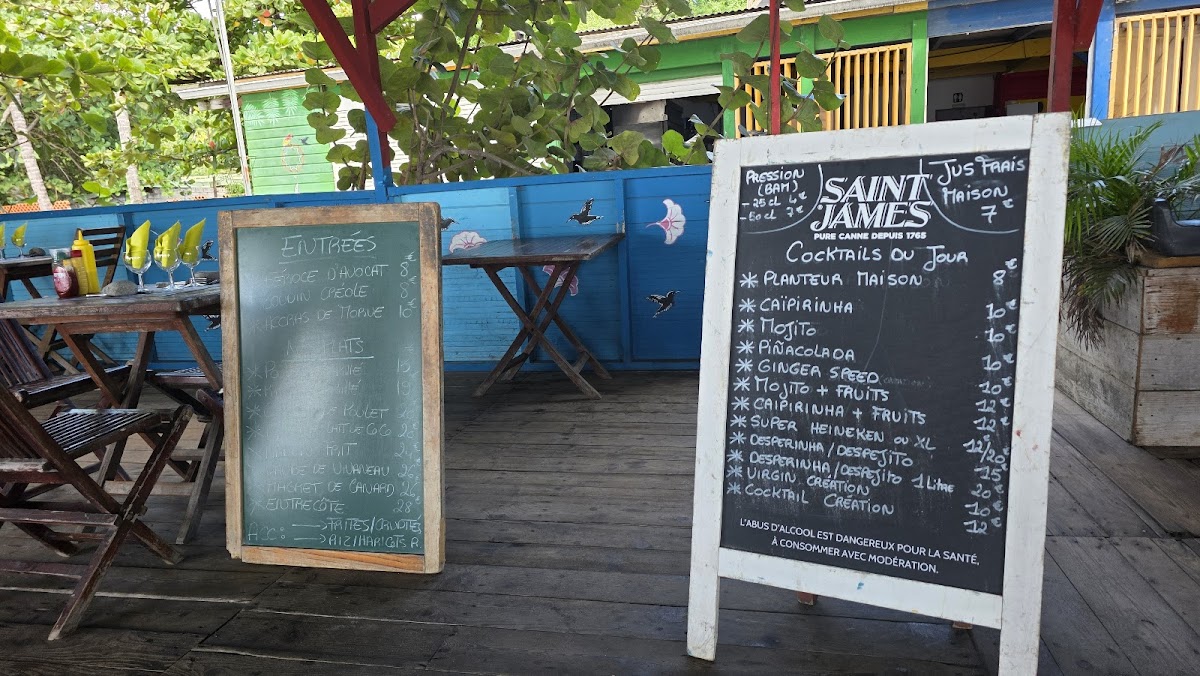 ENTRÉES
FÉROCE D'AVOCAT 8€
BOUDIN CRÉOLE 8€
ACCRAS DE MORUE 10€
PLATS
15
POULET 20
24
DE VIVANEAU 26€
MAGRET DE CANARD 26€
ENTRECÔTE 28€
ACC: → FRITES/CRUDITÉS
→ RIZ/HARICOTS R.
PRESSION
(BAM)
- 25 cl 4€
- 50 cl 7€
SAINT
JAMES
PURE CANNE DEPUIS 1765
JUS FRAIS
MAISON
7€
COCKTAILS DU JOUR
* PLANTEUR MAISON 8€
* CAÏPIRINHA 10€
* MOJITO 10€
* PIÑACOLADA 10€
* GINGER SPEED 10€
* MOJITO + FRUITS 12€
* CAIPIRINHA + FRUITS 12€
* SUPER HEINEKEN OU XL 12/20€
* DESPERINHA/DESPEJITO 15€
* DESPERINHA/DESPEJITO 1 LITRE 20€
* VIRGIN CREATION 10€
* COCKTAIL CRÉATION 12€
L'ABUS D'ALCOOL EST DANGEREUX POUR LA SANTÉ,
À CONSOMMER AVEC MODÉRATION.